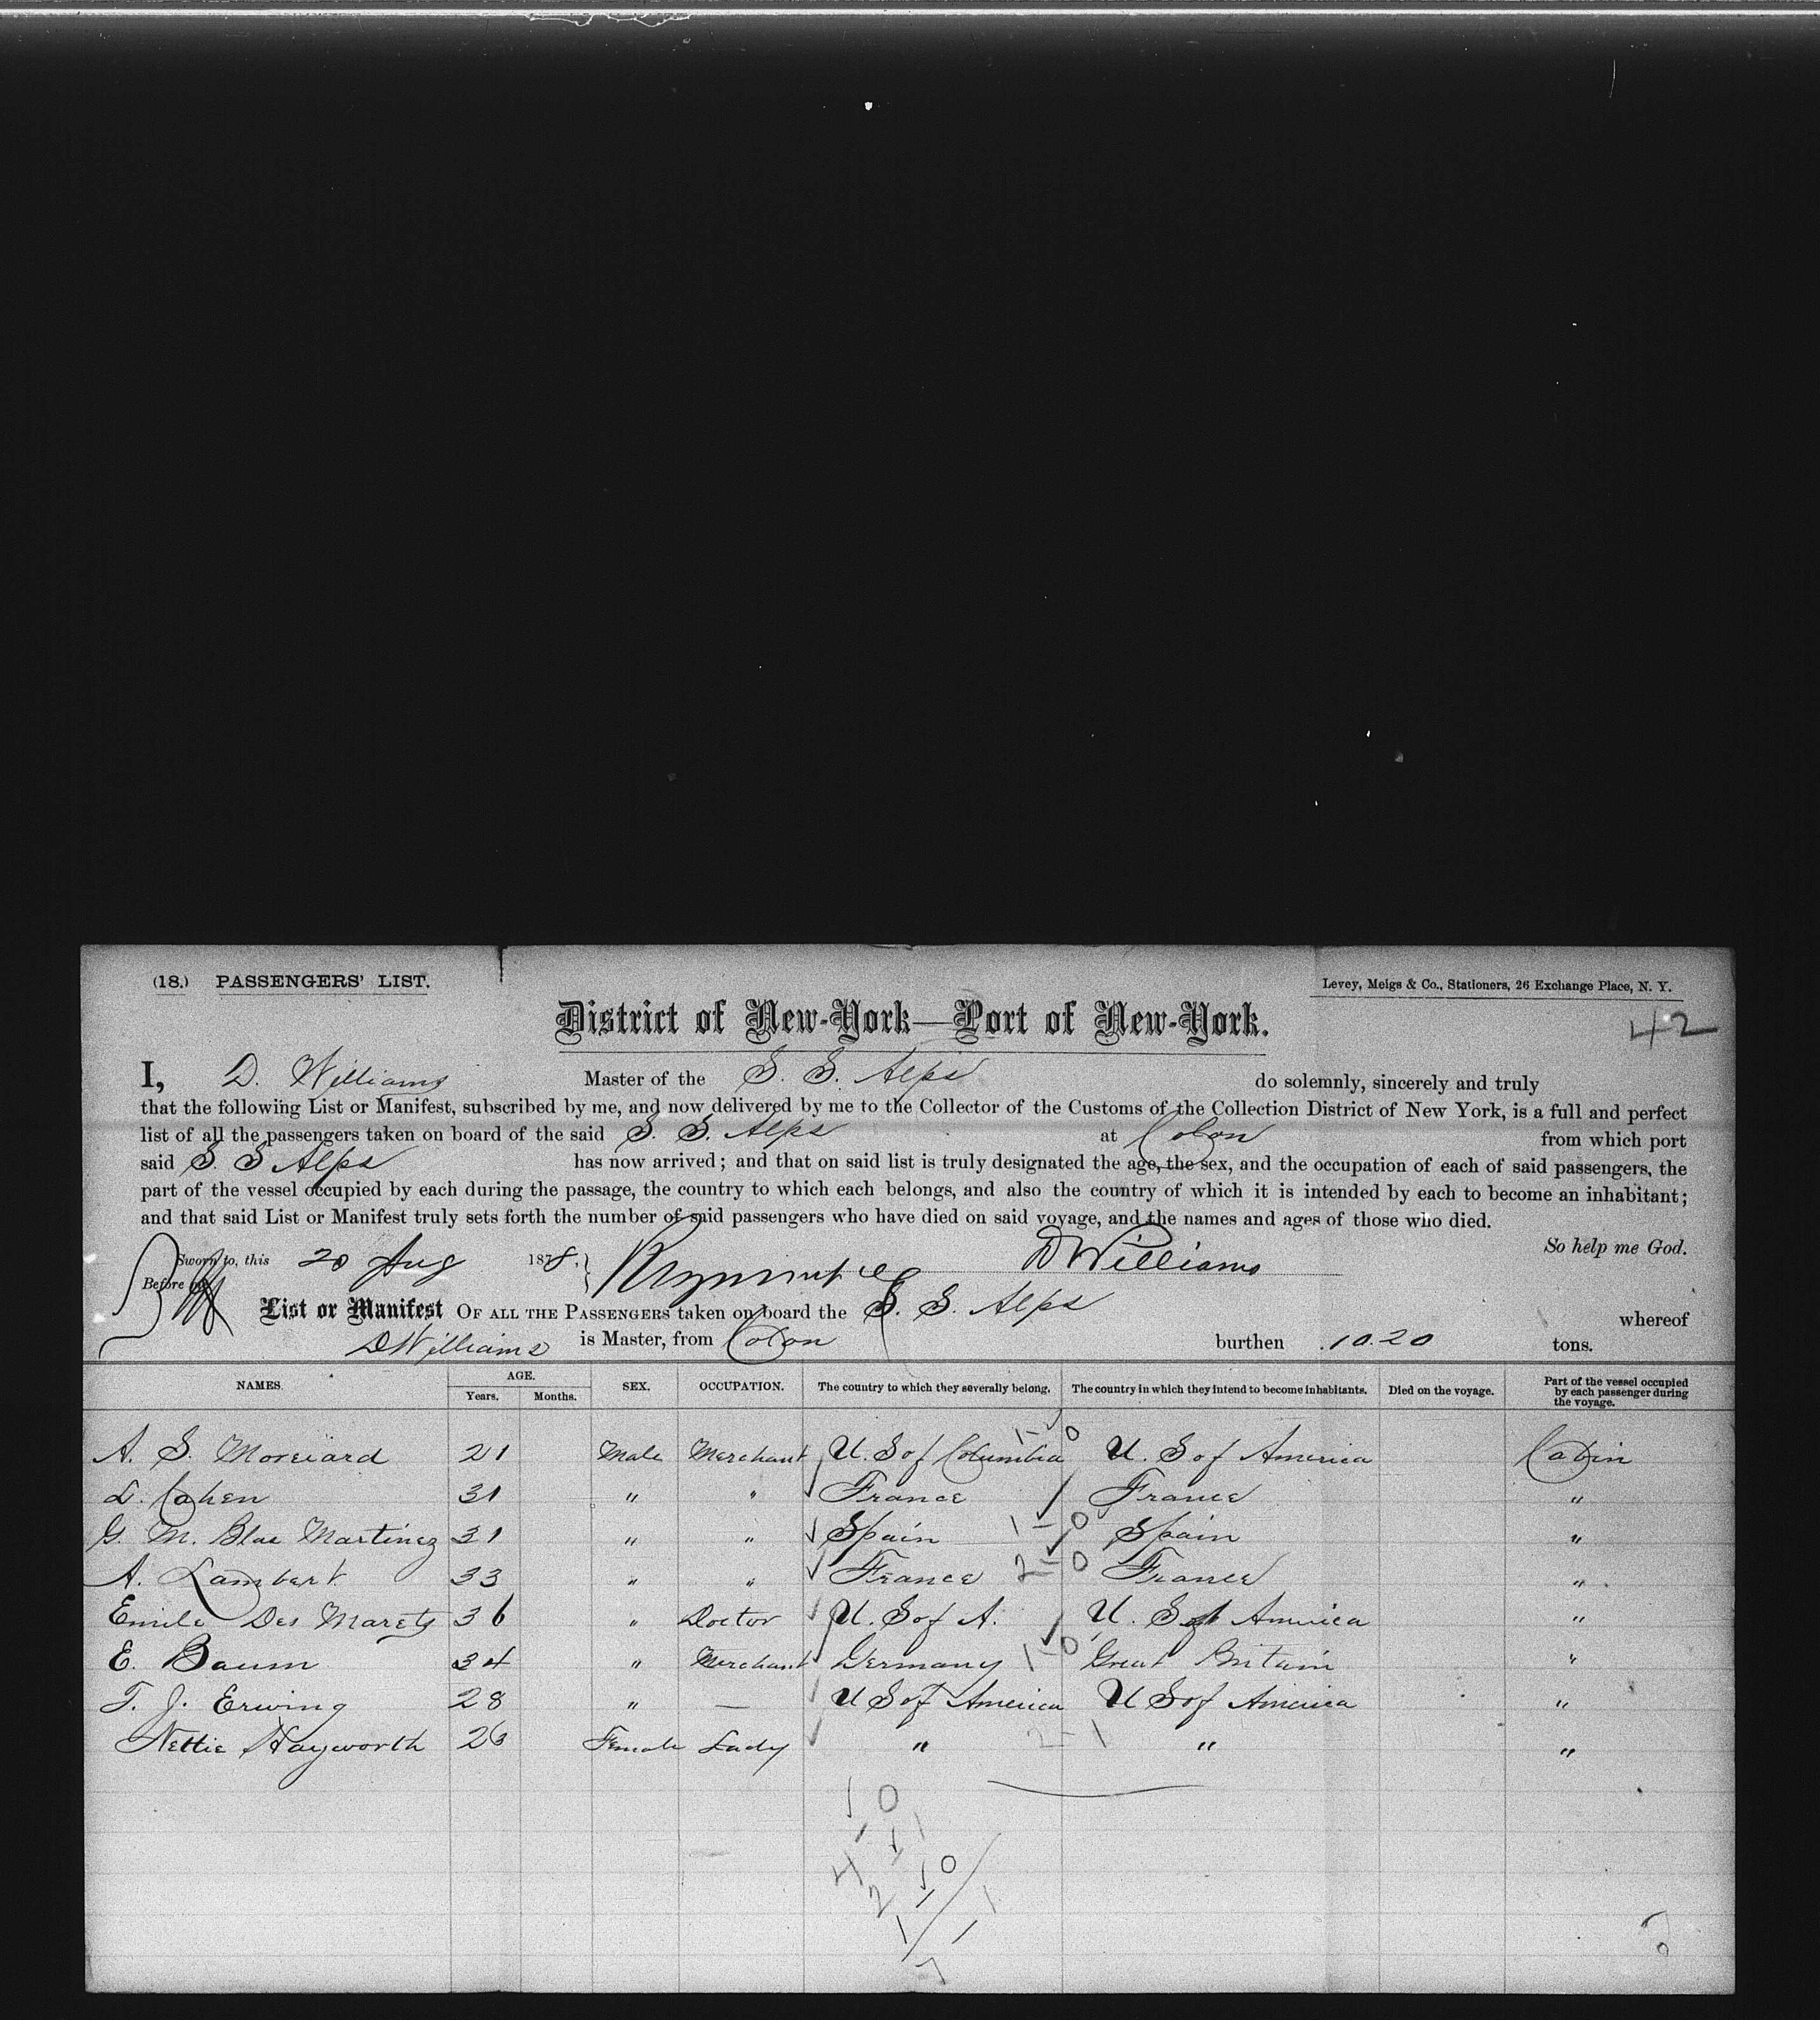 (18.) PASSENGERS' LIST.
Levey, Meigs & Co., Stationers, 26 Exchange Place, N. Y.
District of New-York—Port of New-York.
42
I, D. Williams Master of the S. S. Alps do solemnly, sincerely and truly
that the following List or Manifest, subscribed by me, and now delivered by me to the Collector of the Customs of the Collection District of New York, is a full and perfect
list of all the passengers taken on board of the said S. S. Alps at Colon from which port
said S. S Alps has now arrived; and that on said list is truly designated the age, the sex, and the occupation of each of said passengers, the
part of the vessel occupied by each during the passage, the country to which each belongs, and also the country of which it is intended by each to become an inhabitant;
and that said List or Manifest truly sets forth the number of said passengers who have died on said voyage, and the names and ages of those who died.
So help me God.
Sworn to, this 20 Aug 1878, D Williams
Before me
List or Manifest OF ALL THE PASSENGERS taken on board the S. S. Alps whereof
D Williams is Master, from Colon burthen 10.20 tons.
NAMES AGE. Years. Months. SEX. OCCUPATION. The country to which they severally belong. The country in which they intend to become inhabitants. Died on the voyage. Part of the vessel occupied by each passenger during the voyage.
A. S. 21 Male Merchant U. S of Columbia 1-0 U. S of America Cabin
L. Cohen 31 " " France France "
G. M. Blas Martinez 31 " " Spain 1-0 Spain "
A. Lambert 33 " " France 2-0 France "
Emile Des Marets 36 " Doctor U. S of A. U. S of America "
E. Baum 34 " Merchant Germany 1-0 Great Britain "
T. J. Erwing 28 " — U S of America U S of America "
Nettie Hayworth 26 Female Lady " 2-1 " "